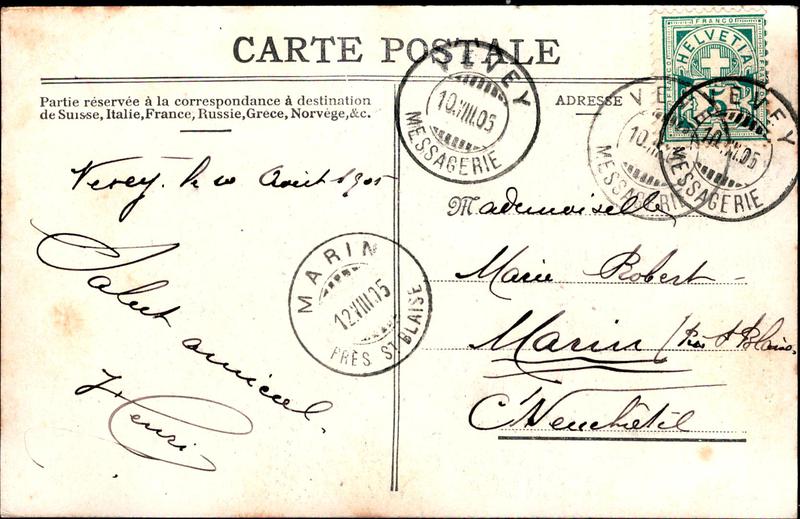 CARTE POSTALE
Partie réservée à la correspondance à destination
de Suisse, Italie, France, Russie, Grece, Norvège, &c.
ADRESSE
FRANCO
HELVETIA
5
VEVEY
10.VIII.05
MESSAGERIE
VEVEY
10.VIII.05
MESSAGERIE
VEVEY
10.VIII.05
MESSAGERIE
Vevey, le 10 Août 1905
Salut amical.
Henri
MARIN
12.VIII.05
PRÈS ST BLAISE
Mademoiselle
Marie Robert -
Marin (Près St Blaise
Ct Neuchâtel